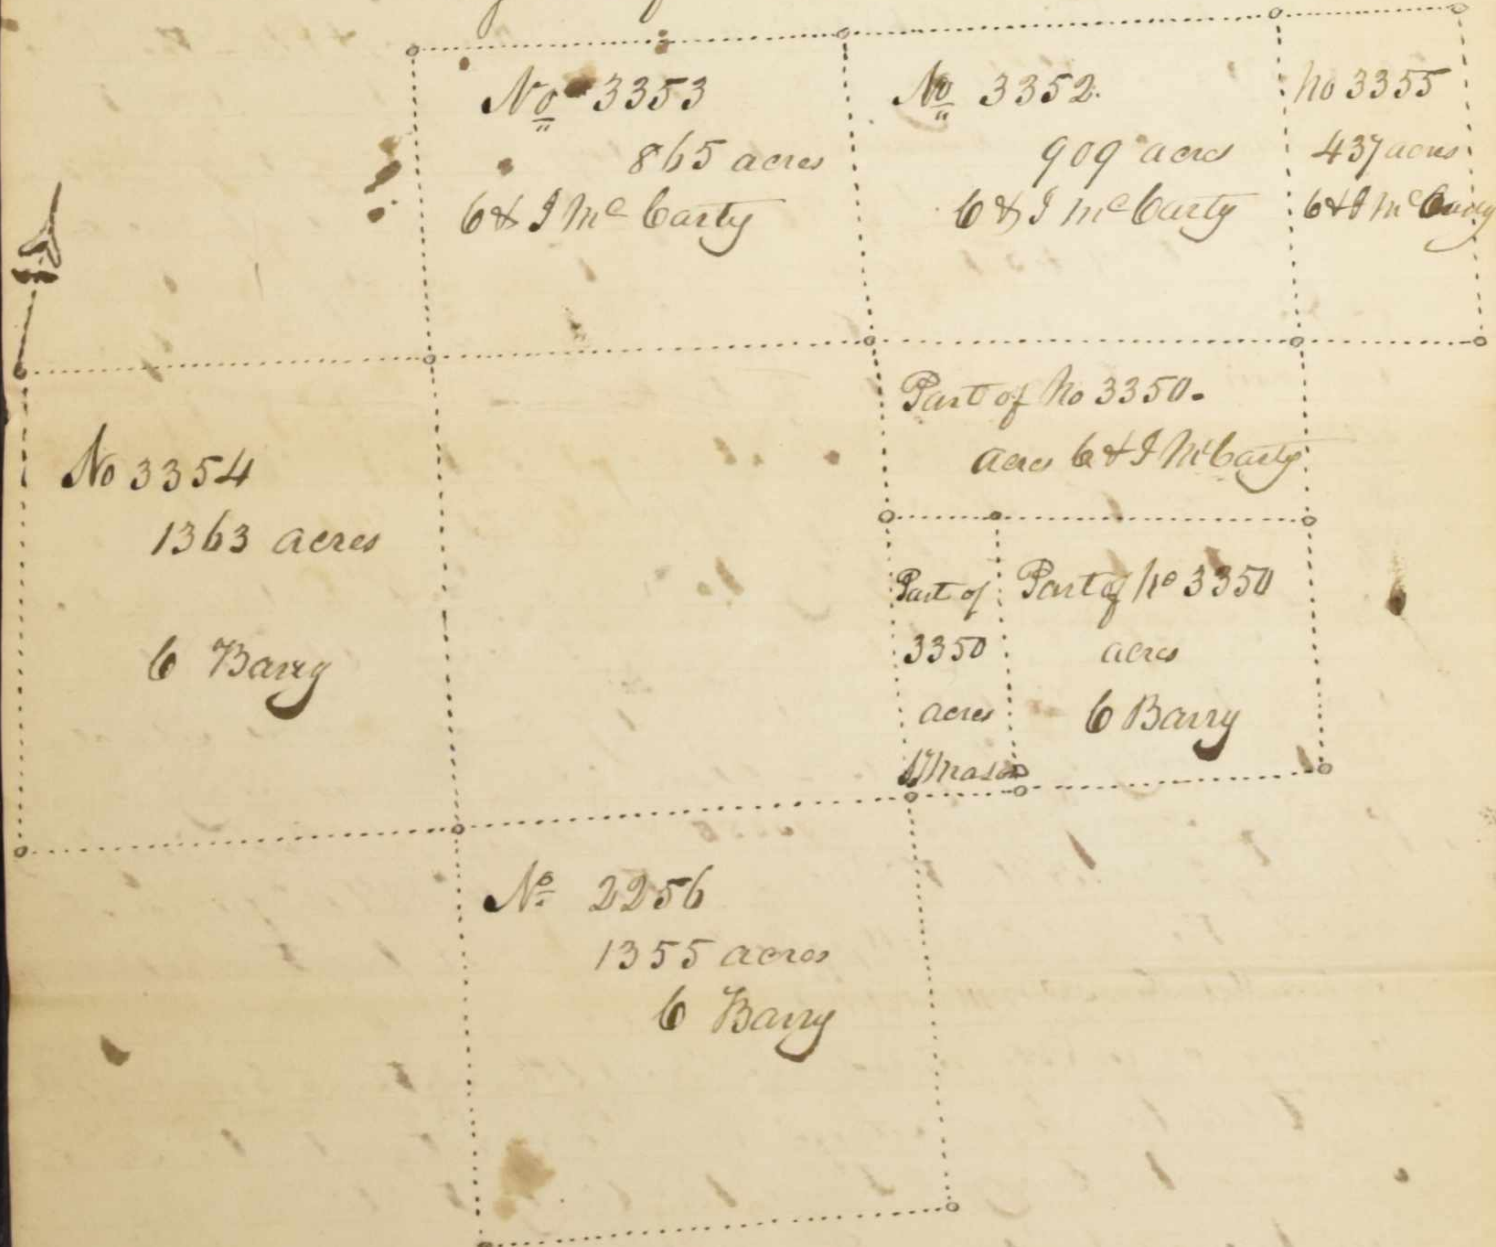 No 3353
865 acres
C & J McCarty
No 3352.
909 acres
C & J McCarty
No 3355
437 acres
C & J McCarty
Part of No 3350.
acres C & J McCarty
No 3354
1363 acres
C Barry
Part of
3350
acres
Mason
Part of No 3350
acres
C Barry
No 2256
1355 acres
C Barry